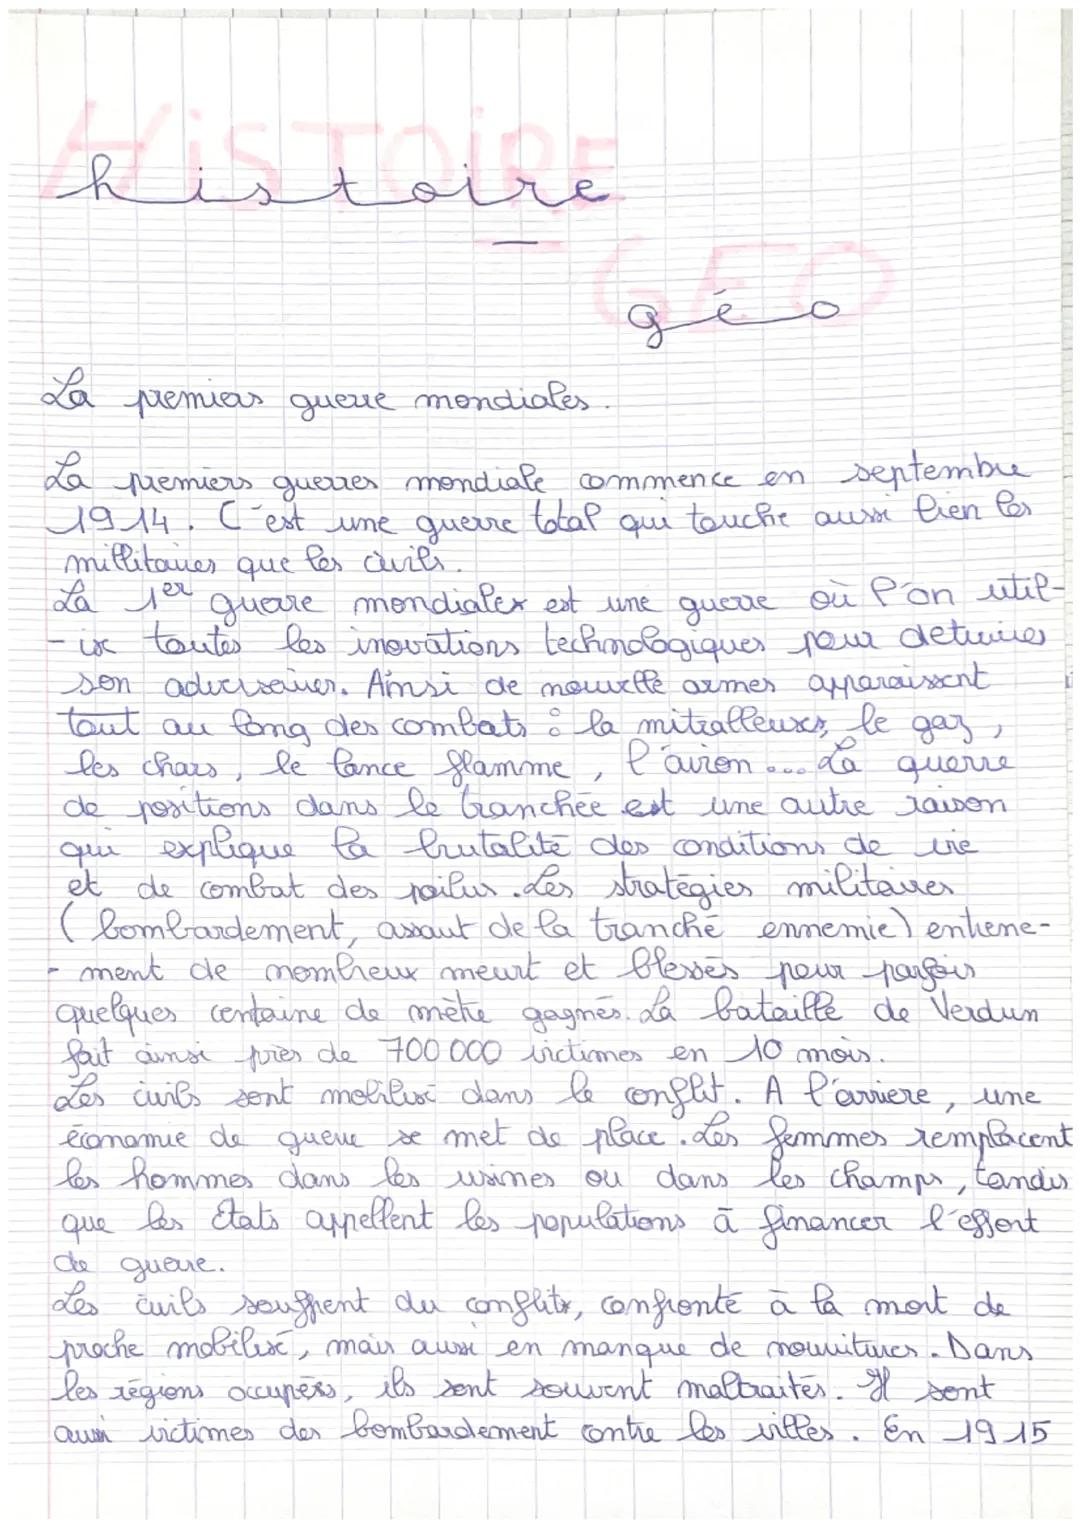 HiSTOiRE
histoire
- GEO
géo
La premiers guerre mondiales.
La premiers guerres mondiale commence en septembre
1914. C'est une guerre total qui touche aussi bien les
millitaires que les civils.
La 1er guerre mondiales est une guerre où l'on util-
-ise toutes les inovations technologiques pour detruires
son adversaires. Ainsi de nouvelle armes apparaissent
tout au long des combats : la mitralleuses, le gaz,
les chars, le lance flamme, l'avion... La guerre
de positions dans le tranchée est une autre raison
qui explique la brutalité des conditions de vie
et de combat des poilus. Les stratégies militaires
(bombardement, assaut de la tranché ennemie) entrene-
-ment de nombreux meurt et blessés pour parfois
quelques centaine de mètre gagnés. La bataille de Verdun
fait ainsi près de 700 000 victimes en 10 mois.
Les civils sont mobilisé dans le conflit. A l'arriere, une
économie de guerre se met de place. Les femmes remplacent
les hommes dans les usines ou dans les champs, tandis
que les états appellent les populations à financer l'effort
de guerre.
Les civils souffrent du conflits, confronté à la mort de
proche mobilisé, mais aussi en manque de nourritures. Dans
les régions occupées, ils sont souvent maltraités. Il sont
aussi victimes des bombardement contre les villes. En 1915